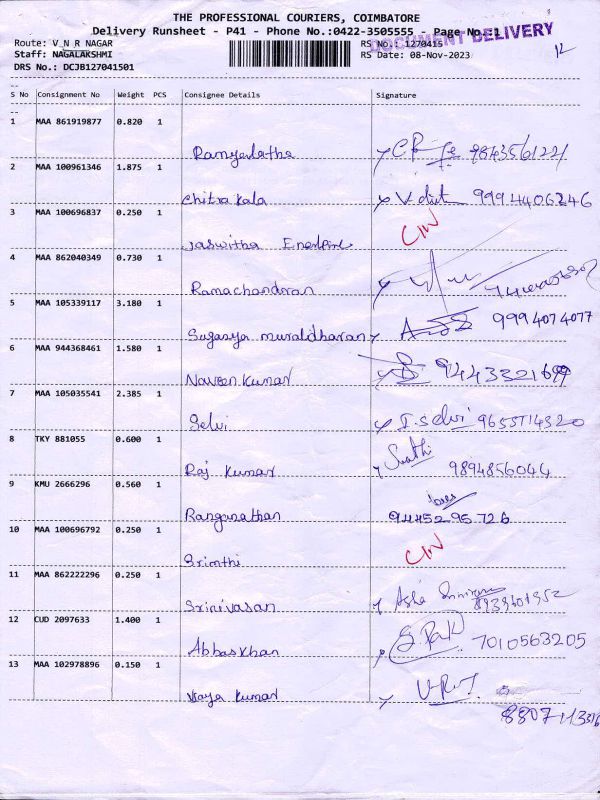 THE PROFESSIONAL COURIERS, COIMBATORE
Delivery Runsheet - P41 - Phone No.:0422-3505555 - Page No.:1
DOCUMENT DELIVERY
Route: V N R NAGAR RS No.: 1270415
Staff: NAGALAKSHMI RS Date: 08-Nov-2023 12
DRS No.: DCJB127041501
S No Consignment No Weight PCS Consignee Details Signature
1 MAA 861919877 0.820 1
Ramyalatha
2 MAA 100961346 1.875 1
Chitra kala 9994406246
3 MAA 100696837 0.250 1
Jaswitha
4 MAA 862040349 0.730 1
Ramachandran
5 MAA 105339117 3.180 1
Sugasya muralidharan 9994074077
6 MAA 944368461 1.580 1
Naveen Kumar
7 MAA 105035541 2.385 1
Selvi I. Selvi 9655714320
8 TKY 881055 0.600 1
Raj Kumar 9894856044
9 KMU 2666296 0.560 1
Ranganathan 94452 95 726
10 MAA 100696792 0.250 1
Srimthi
11 MAA 862222296 0.250 1
Srinivasan Asha
12 CUD 2097633 1.400 1
Abbaskhan 7010563205
13 MAA 102978896 0.150 1
Vijaya Kumar